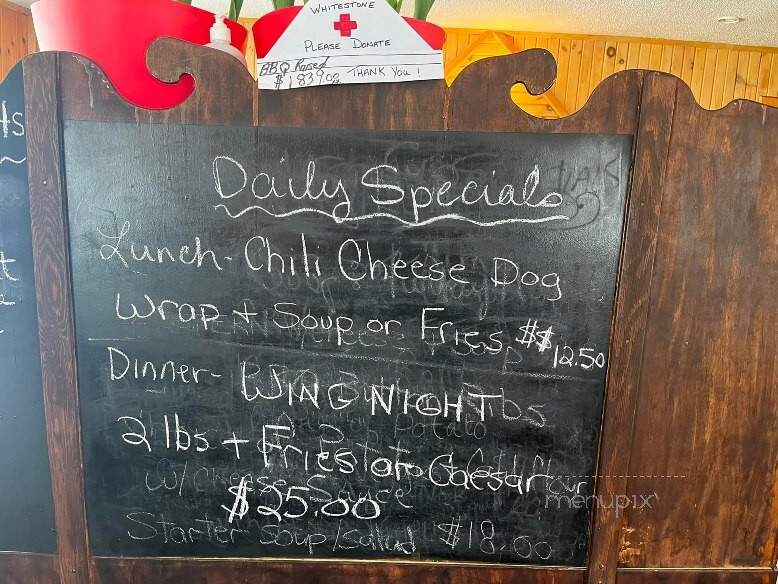 WHITESTONE
PLEASE DONATE
BBQ Raised
$1,839.05 THANK YOU!
Daily Specials
Lunch - Chili Cheese Dog
Wrap + Soup or Fries $12.50
Dinner - WING NIGHT
2 lbs + Fries or Caesar
w/ Cheese Sauce
$25.00
Starter Soup/Salad $18.00
menupix